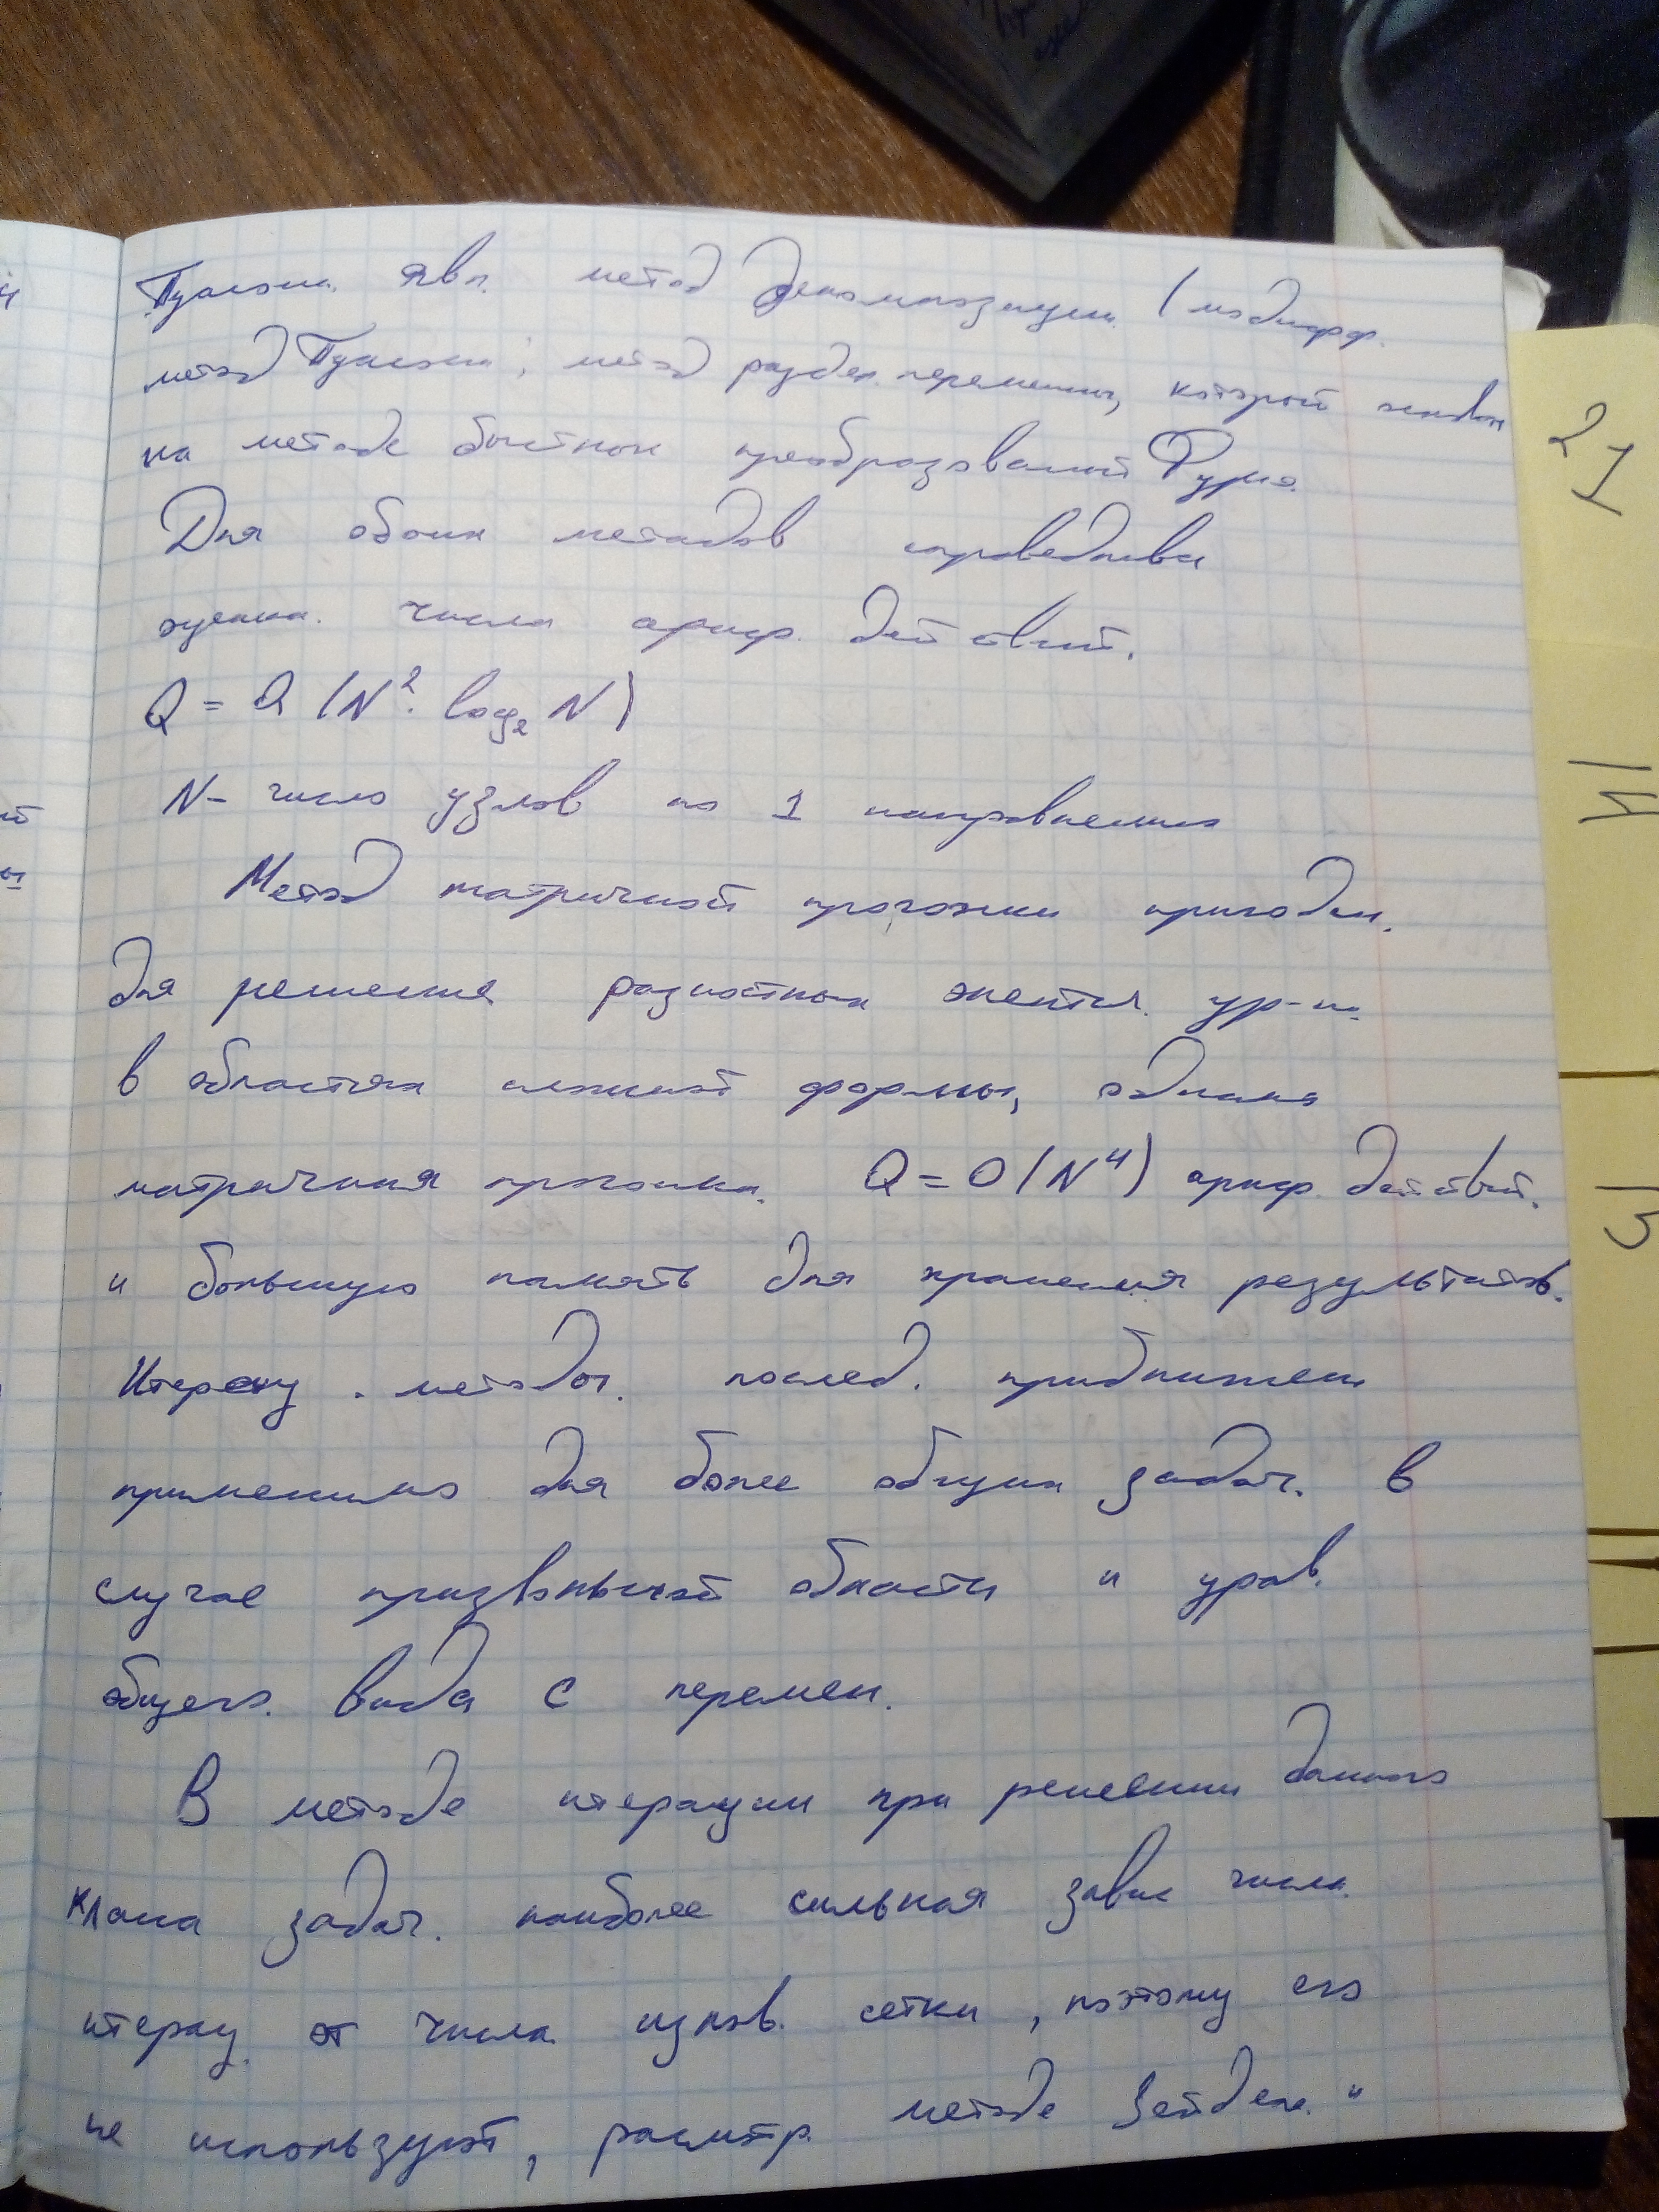 Пуассона явл. метод декомпозиции (модифф.
метод Пуассона; метод раздел. переменных, который основан
на методе быстрого преобразований Фурье.
Для обоих методов справедлива
оценка числа ариф. действий.
Q = O (N². log₂ N)
N- число узлов по 1 направлению
Метод матричной прогонки пригоден.
для решения разностных эллептич. ур-ий
в областях сложной формы, однако
матричная прогонка. Q = O (N⁴) ариф. действий.
и большую память для хранения результатов.
Итерац. методы. послед. приближен
применимо для более общих задач. в
случае произвольной области и урав.
общего. вида с перемен.
В методе итерации при решении данного
класса задач. наиболее сильная завис числа
итерац. от числа узлов. сетки, поэтому его
не используют, рассмтр. методе Зейделя. и
21